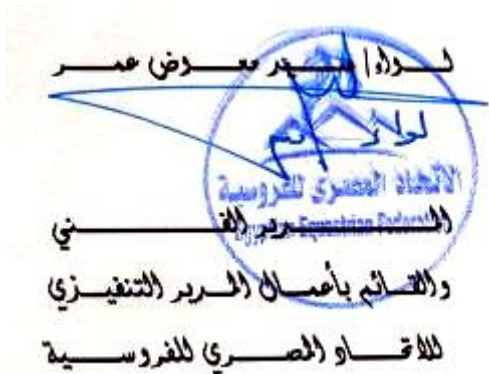 لواء/ سمير معوض عمر
الاتحاد المصرى للفروسية
Egyptian Equestrian Federation
المدير الفني
والقائم بأعمال المدير التنفيذي
للاتحاد المصري للفروسية